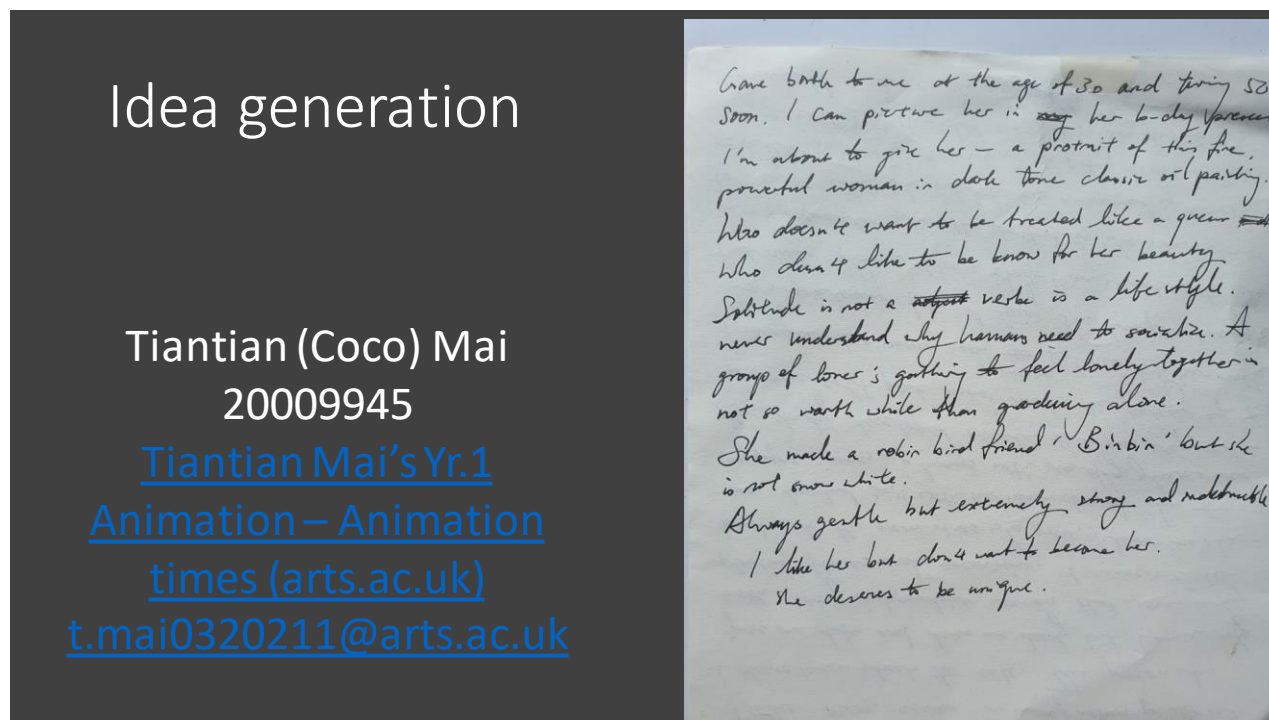 Idea generation
Tiantian (Coco) Mai
20009945
Tiantian Mai's Yr.1
Animation – Animation
times (arts.ac.uk)
t.mai0320211@arts.ac.uk
Gave birth to me at the age of 30 and turing 50
soon. I can picture her in her b-day
I'm about to give her – a protrait of this fine,
powerful woman in dark tone classic oil painting.
Who doesn't want to be treated like a queen
Who doesn't like to be know for her beauty
Solitude is not a verbe is a lifestyle.
never understand why humans need to socialize. A
group of loner's gathing to feel lonely together is
not so worth while than gardening alone.
She made a robin bird friend 'Binbin' but she
is not snow white.
Always gentle but extremely strong and indestructible
I like her but don't want to become her.
she deseres to be unique.